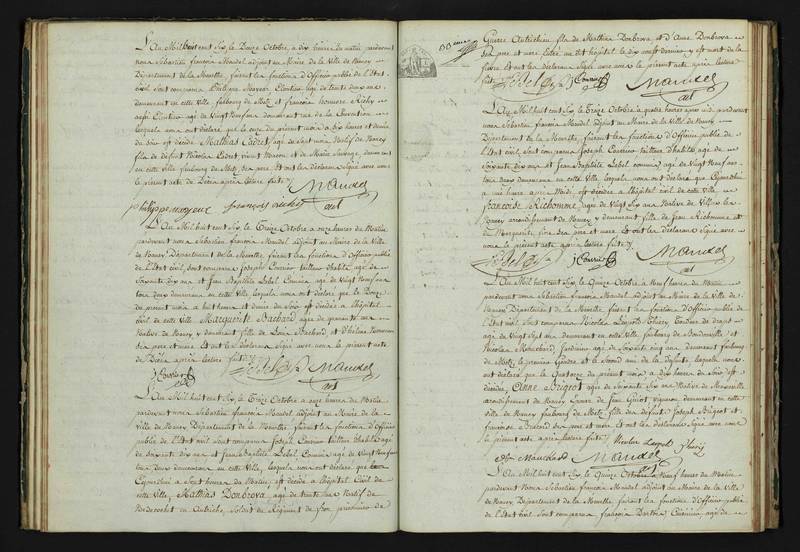 L'An Mil huit cent Six, le Douze Octobre, à dix heures du matin pardevant
nous Sébastien françois Mandel adjoint au Maire de la Ville de Nancy
Département de la Meurthe, faisant les fonctions d'Officier public de l'Etat
civil, sont comparus Philippe Mayeur agé de trente six ans
demeurant en cette ville faubourg de et françois
agé de vingt neuf ans demeurant rue de la
lesquels nous ont déclaré que le onze du présent mois à dix heures et demie
du soir est décédé Mathias Cadret agé de sept ans Natif de Nancy
fils de défunt Nicolas Cadret vivant Macon et de Marie demeurant
en cette ville faubourg de Metz, ses père et mère. Et ont les déclarans signé avec nous
le présent acte de Décès après lecture faite
philippe mayeur françois Mandel
adt
L'An Mil huit cent Six, le Treize Octobre à onze heures du Matin
pardevant nous Sébastien françois Mandel adjoint au Maire de la Ville
de Nancy Département de la Meurthe, faisant les fonctions d'Officier public
de l'Etat civil, sont comparus Joseph Courrier tailleur d'habits agé de
Soixante dix ans et Jean Baptiste Lebel Commis agé de Vingt Neuf ans
tous deux demeurans en cette ville, lesquels nous ont déclaré que le Douze
du présent mois à huit heures et demie du Soir est décédée à l'hôpital
civil de cette Ville Marguerite Bachard agée de ans
Native de Nancy y demeurant fille de Louis Bachard, et d'hélène
ses père et mère. Et ont les déclarans Signé avec nous le présent acte
de Décès après lecture faite
J Courrier Lebel Mandel
adt
L'An Mil huit cent Six, le Treize Octobre à onze heures du Matin
pardevant nous Sébastien françois Mandel adjoint au Maire de la
Ville de Nancy Département de la Meurthe, faisant les fonctions d'Officier
public de l'Etat civil sont comparus Joseph Courrier tailleur d'habits agé
de Soixante dix ans et Jean Baptiste Lebel Commis agé de Vingt Neuf ans
tous deux demeurans en cette Ville, lesquels nous ont déclaré que
Cejourd'hui à Sept heures du Matin, est décédé à l'hôpital Civil de
cette Ville, Mathias Donbrova agé de trente ans Natif de
en Autriche, Soldat du Régiment de prisonnier de
Guerre Autrichien fils de Mathias Donbrova et d'Anne Donbrova
ses père et mère Entré au dit hôpital le dix neuf dernier y est mort de la
fièvre Et ont les déclarans Signé avec nous le présent acte après lecture
faite Lebel J Courrier Mandel
adt
L'An Mil huit cent Six, le Treize Octobre à quatre heures après midi pardevant
nous Sébastien françois Mandel adjoint au Maire de la Ville de Nancy
Département de la Meurthe, faisant les fonctions d'Officier public de
l'Etat civil, sont comparus Joseph Courrier tailleur d'habits agé de
Soixante dix ans et Jean Baptiste Lebel commis agé de Vingt Neuf ans
tous deux demeurans en cette Ville, lesquels nous ont déclaré que Cejourd'hui
à une heure après Midi est décédée à l'hôpital civil de cette Ville
françoise Richomme agée de Vingt Six ans Native de
Nancy arrondissement de Nancy y demeurant fille de Jean Richomme et
de Marguerite ses père et mère. Et ont les déclarans Signé avec
nous le présent acte après lecture faite
Lebel J Courrier Mandel
adt
L'An Mil huit cent Six, le Quinze Octobre à Neuf heures du Matin
pardevant nous Sébastien françois Mandel adjoint au Maire de la Ville
de Nancy Département de la Meurthe, faisant les fonctions d'Officier public
de l'Etat civil, sont comparus Nicolas Leopold Thiery Tondeur de draps
agé de Vingt Sept ans demeurant en cette ville, faubourg de et
Nicolas Manchard, Jardinier agé de Soixante cinq ans demeurant faubourg
de Metz, le premier Gendre et le Second ami de la défunte, lesquels nous
ont déclaré que le Quatorze du présent mois à dix heures du soir est
décédée, Anne Brigeot agée de Soixante Six ans Native de
arrondissement de Nancy Veuve de Jean Vigneron demeurant en cette
ville de Nancy faubourg de Metz, fille des défunt Joseph Brigeot et
françoise ses père et mère Et ont les déclarans Signé avec nous
le présent acte après lecture faite Nicolas Leopold Thiery
Manchard Mandel
adt
L'An Mil huit cent Six, le Quinze Octobre à Neuf heures du Matin
pardevant Nous Sébastien françois Mandel adjoint au Maire de la Ville
de Nancy Département de la Meurthe, faisant les fonctions d'Officier public
de l'Etat Civil, Sont comparus, françois agé de